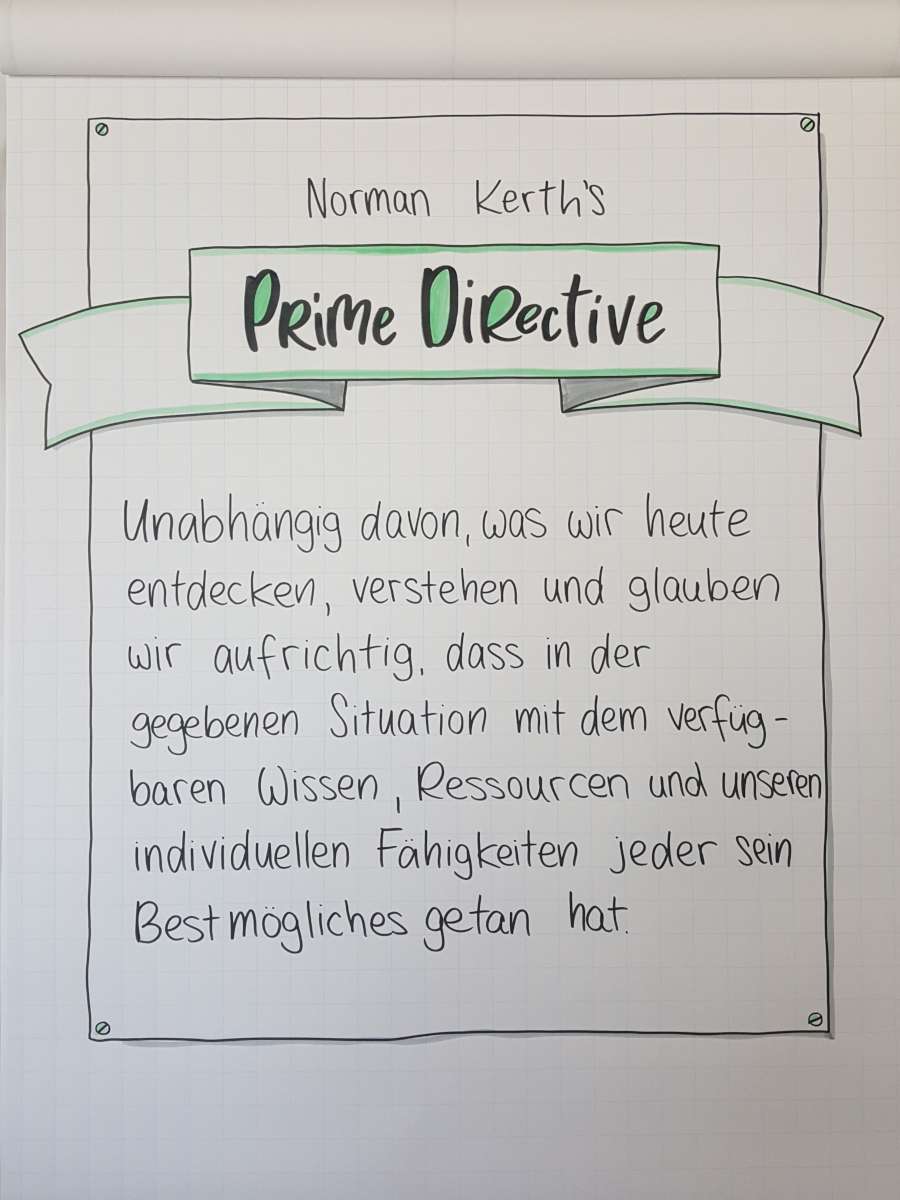 Norman Kerth's
Prime Directive
Unabhängig davon, was wir heute
entdecken, verstehen und glauben
wir aufrichtig, dass in der
gegebenen Situation mit dem verfüg-
baren Wissen, Ressourcen und unseren
individuellen Fähigkeiten jeder sein
Bestmögliches getan hat.